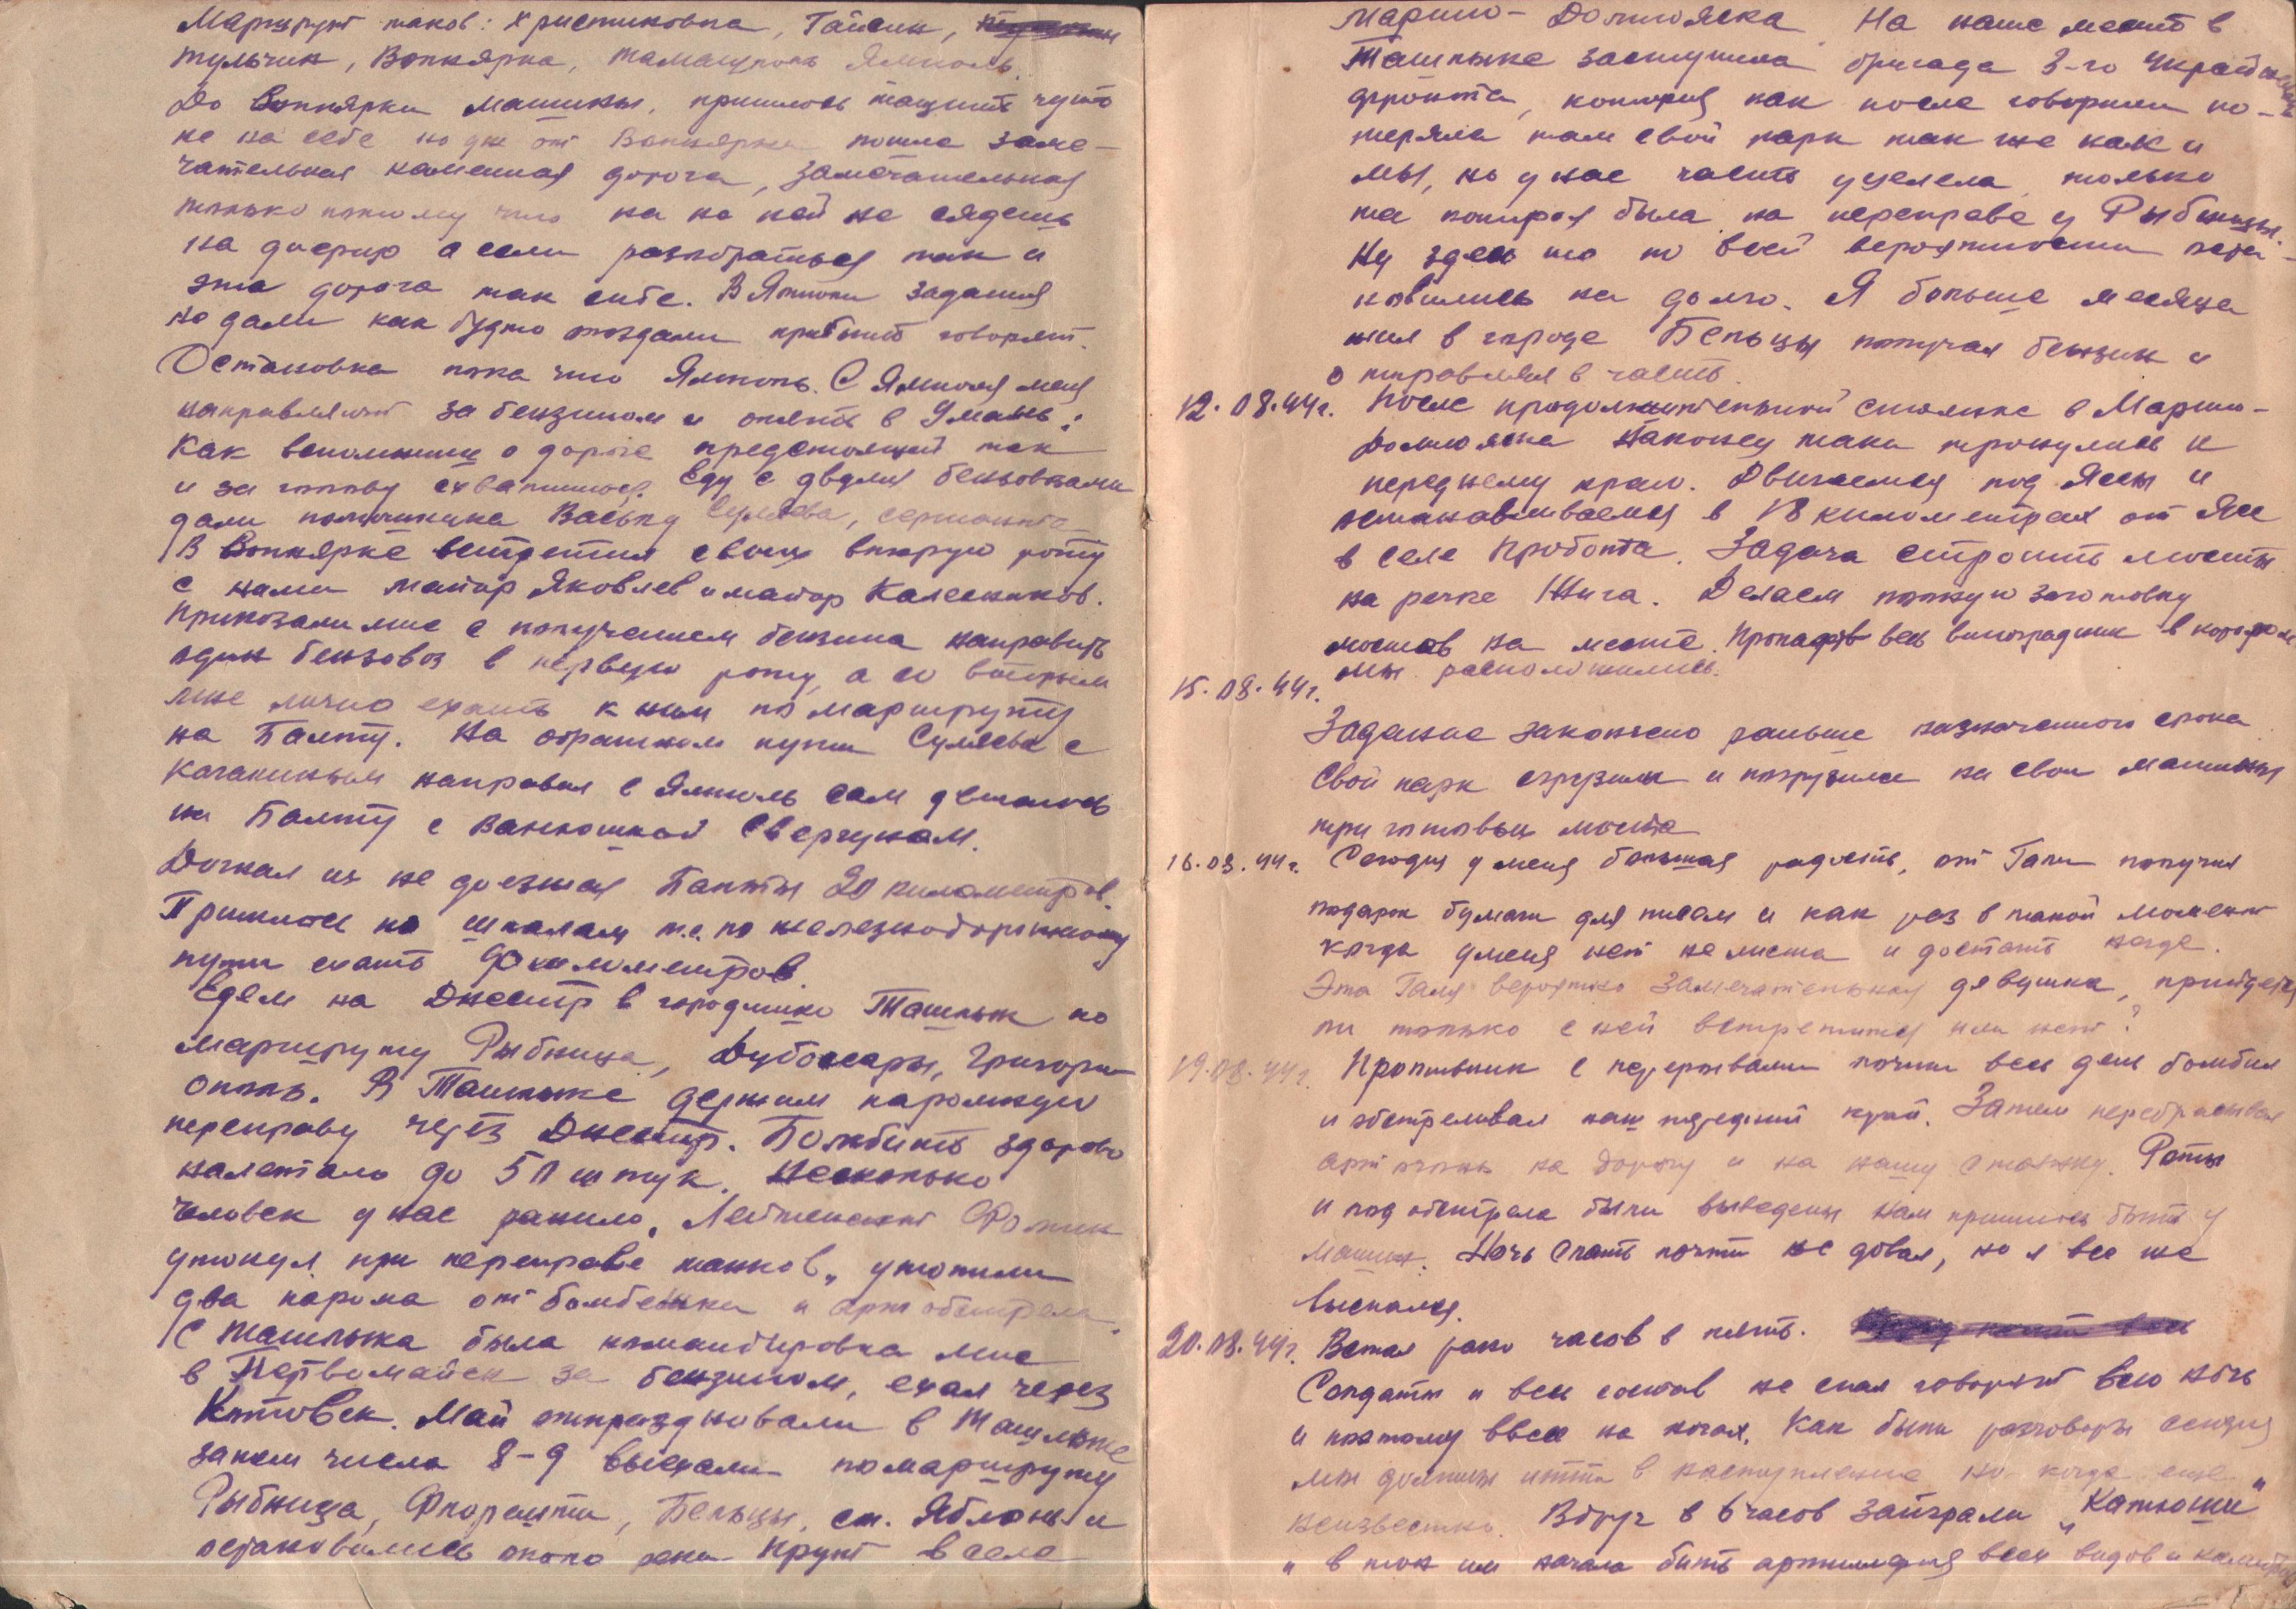 Маршрут таков: Христиновка, Гайсин,
тульчин, Вапнярка, томашполь Ямполь.
До Вапнярки машины, пришлось тащить чуть
не на себе но уж от Вапнярки пошла заме-
чательная каменная дорога, замечательная
только потому что на не ней не сядешь
на диефир а если разобраться так и
эта дорога так себе. В Ямполи задания
не дали как будто опоздали прибыть говорят.
Остановка пока что Ямполь. С Ямполя меня
направляют за бензином и опять в Умань:
Как вспомнишь о дороге предстоящей так
и за голову схватишься. Еду с двумя бензовозами
дали помощника Ваську Суляева, сержанта
В Вапнярке встретил свою вторую роту
с нами майор Яковлев и майор Калесников.
Приказали мне с получением бензина направить
один бензовоз в первую роту, а со вторым
мне лично ехать к ним по маршруту
на Балту. На обратном пути Суляева с
направил в Ямполь сам двигаюсь
на Балту с Ванюшкой Свергуном.
Догнал их не доезжая Балты 20 километров.
Пришлось по шпалам т.е. по железнодорожному
пути ехать километров.
Едем на Днестр в городишко Ташлык по
маршруту Рыбница, Дубоссары, Григори-
ополь. В Ташлыке держим паромную
переправу через Днестр. Бомбить здорово
налетало до 50 штук. Несколько
человек у нас ранило. Лейтенант Фомин
утонул при переправе танков, утопили
два парома от бомбежки и арт обстрела.
С ташлыка была командировка мне
в Первомайск за бензином, ехал через
Котовск. Май отпраздновали в Ташлыке
затем числа 8-9 выехали по маршруту
Рыбница, Флорешти, Бельцы, ст. Яблонь и
остановились около реки Прут в селе
марино-Долмояска На наше место в
Ташлыке заступила бригада 3-го Украинского
фронта, которая как после говорили по-
теряла там свой парк так же как и
мы, но у нас часть уцелела только
та которая была на переправе у Рыбницы.
Ну здесь то по всей вероятности оста-
новились на долго. Я больше месяца
жил в городе Бельцы получая бензин и
отправляя в часть.
12.08.44г. После продолжительной стоянке в Марино-
долмояска Наконец таки тронулись к
переднему краю. Двигаемся под Яссы и
останавливаемся в 18 километрах от Ясс
в селе Пробота. Задача строить мосты
на речке Жижа. Делаем полную заготовку
мостов на месте. весь виноградник в котором
мы расположились.
15.08.44г.
Задание закончено раньше назначенного срока
Свой парк сгрузили и погрузили на свои машины
три готовых моста
16.08.44г. Сегодня у меня большая радость, от Гали получил
подарок бумаги для писем и как раз в такой момент
когда у меня нет не листа и достать негде.
Эта Галя вероятно замечательная девушка, прийдется
ли только с ней встретится или нет?
19.08.44г. Противник с перерывами почти весь день бомбил
и обстреливал наш передний край. Затем перебрасывал
арт огонь на дорогу и на нашу стоянку. Роты
и под обстрела были выведены нам пришлось быть у
машин. Ночь спать почти не давал, но я все же
выспался.
20.08.44г. Встал рано часов в пять.
Солдаты и весь состав не спал говорят всю ночь
и поэтому ввесь на ногах. Как были разговоры сегодня
мы должны итти в наступление но когда еще
неизвестно. Вдруг в 6 часов заиграли „Катюши"
и в тон им начала бить артилерия всех видов и калибров